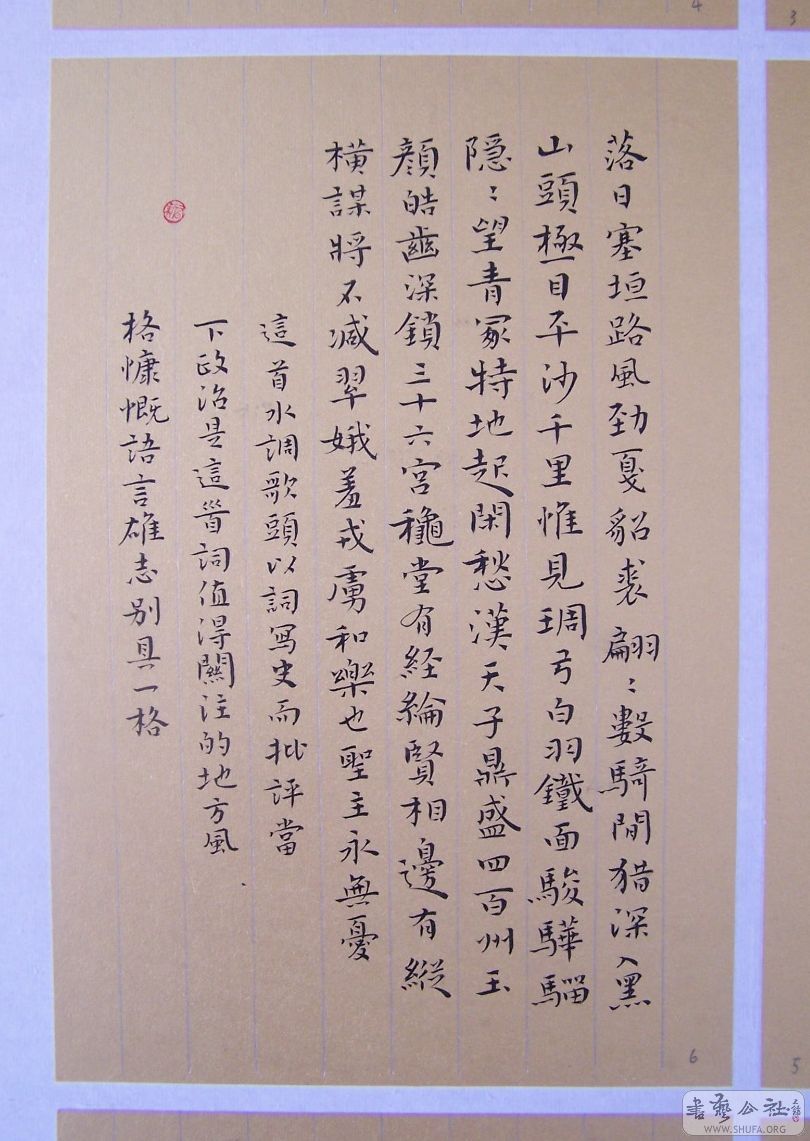 落日塞垣路風勁戛貂裘翩〻數騎閒猎深入黑
山頭極目平沙千里惟見琱弓白羽鐵面駿驊騮
隱〻望青冢特地起閑愁漢天子鼎盛四百州玉
顏皓齒深鎖三十六宮穐堂有経綸賢相邊有縱
橫謀將不減翠娥羞戎虜和樂也聖主永無憂
這首水調歌頭以詞寫史而批評當
下政治是這首詞值得關注的地方風
格慷慨語言雄志别具一格
4
3
6
5
書藝公社
WWW.SHUFA.ORG